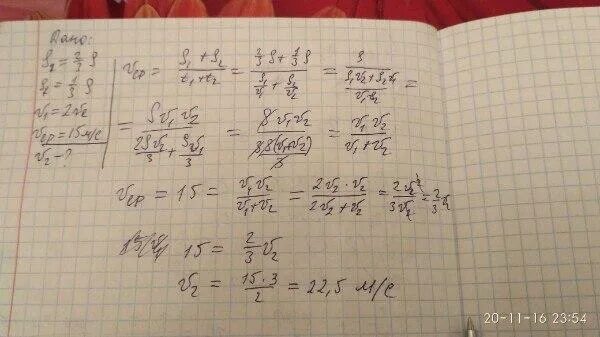 Дано:
S₁ = 2/3 S
S₂ = 1/3 S
v₁ = 2v₂
vср = 15 м/с
v₂ - ?
vср = (S₁ + S₂)/(t₁ + t₂) = (2/3 S + 1/3 S)/(S₁/v₁ + S₂/v₂) = S/((S₁v₂ + S₂v₁)/(v₁v₂)) =
= Sv₁v₂/(2Sv₂/3 + Sv₁/3) = = v₁v₂/(v₁ + v₂)
vср = 15 = v₁v₂/(v₁ + v₂) = 2v₂·v₂/(2v₂ + v₂) = 2v₂²/3v₂ = 2/3 v₂
15 = 2/3 v₂
v₂ = 15·3/2 = 22,5 м/с
20-11-16 23:54